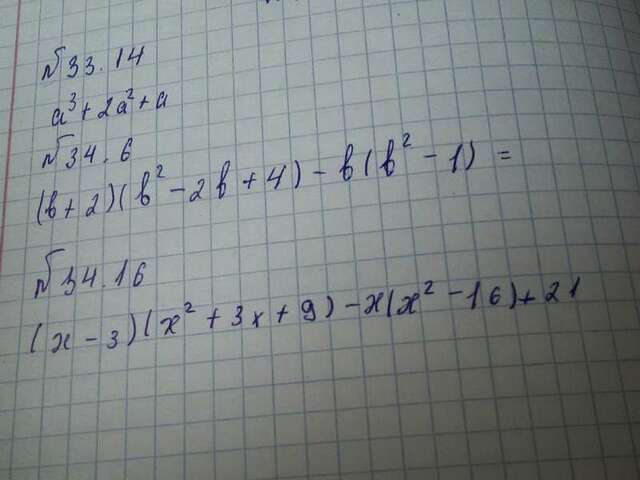 №33.14
a³+2a²+a
№34.6
(b+2)(b²-2b+4)-b(b²-1)=
№34.16
(x-3)(x²+3x+9)-x(x²-16)+21